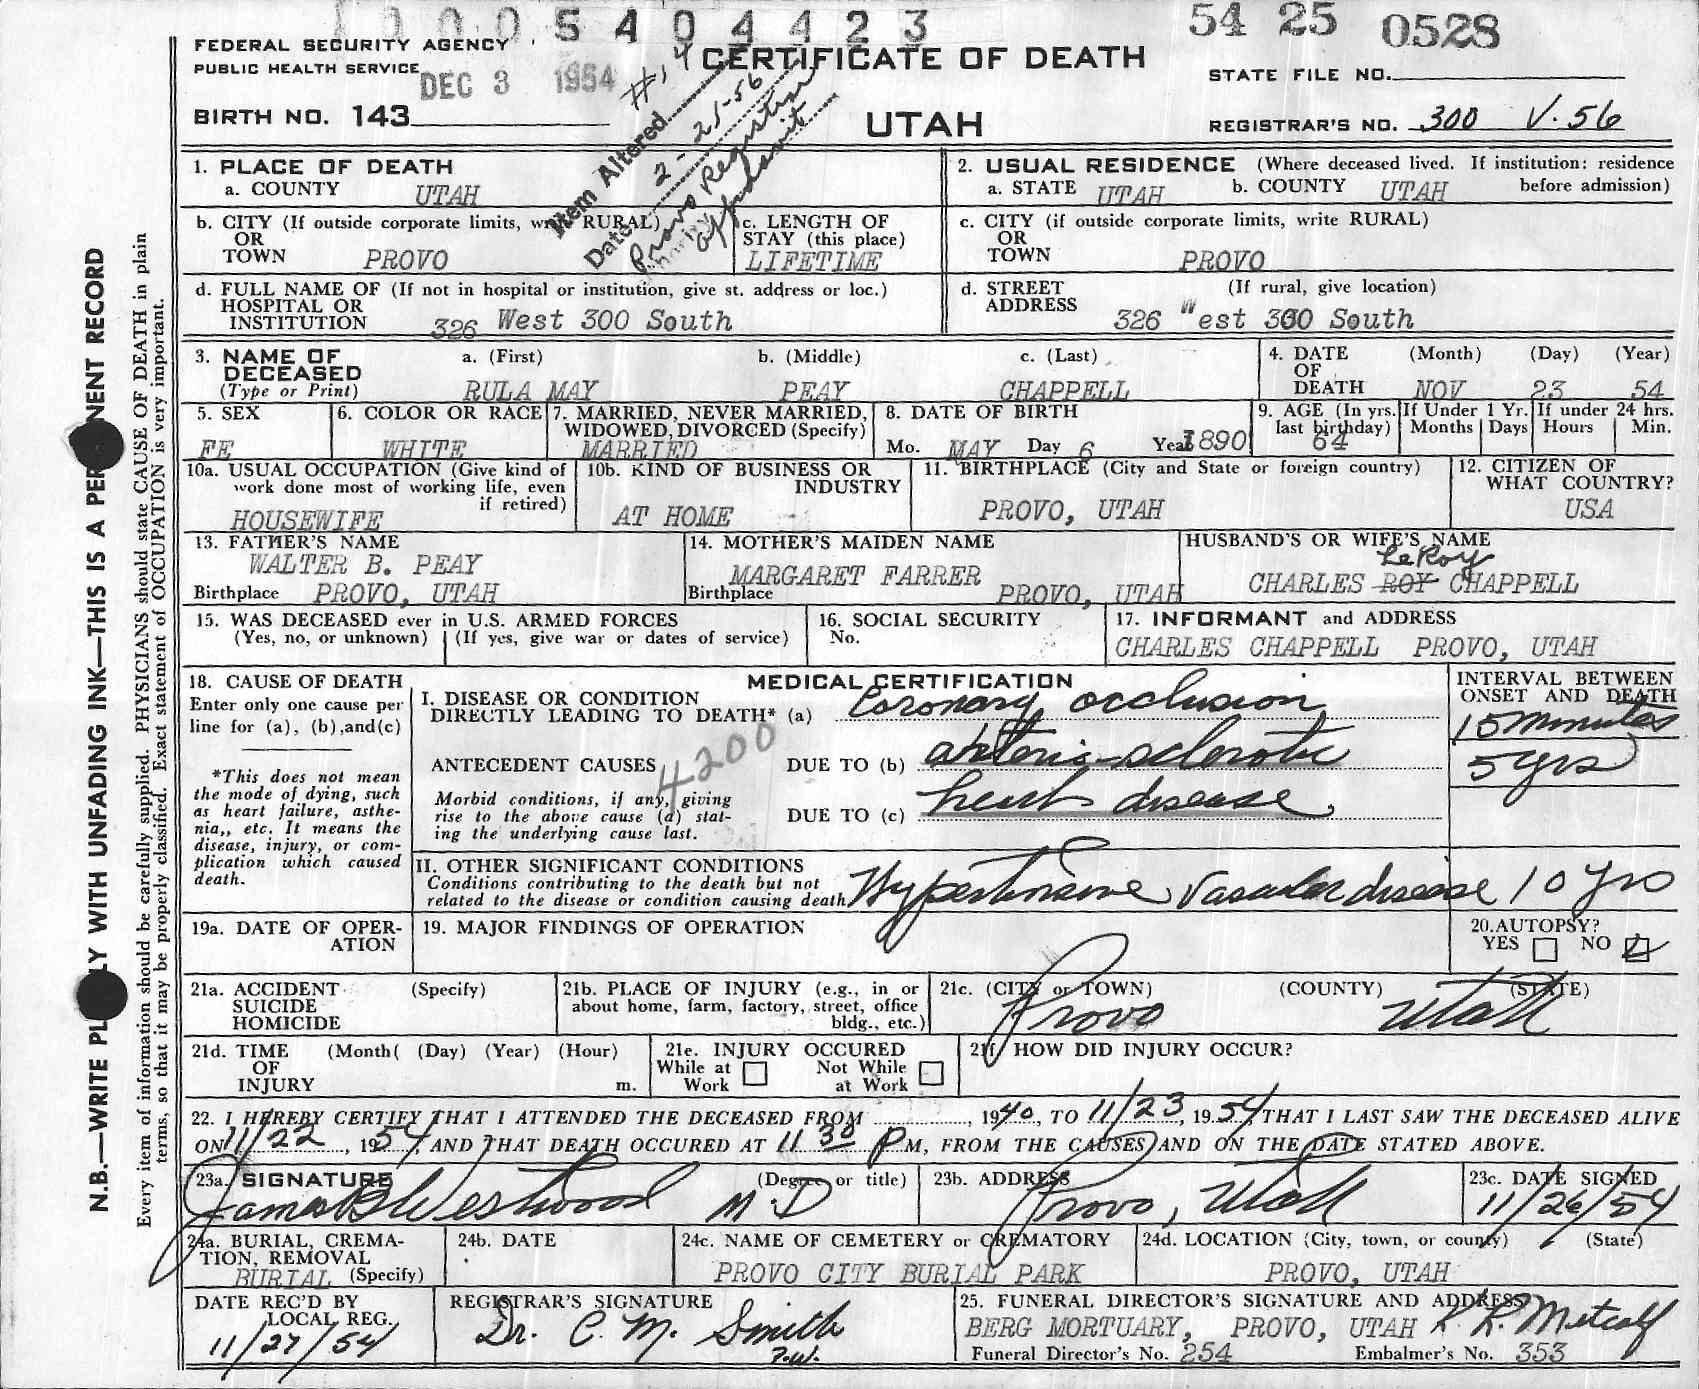 1 0 0 0 5 4 0 4 4 2 3
54 25 0528
FEDERAL SECURITY AGENCY
PUBLIC HEALTH SERVICE
DEC 3 1954
CERTIFICATE OF DEATH
STATE FILE NO.
BIRTH NO. 143
UTAH
REGISTRAR'S NO. 300 V.56
Item Altered #14
Date 2-21-56
Provo Registrar
affidavit
1. PLACE OF DEATH
a. COUNTY UTAH
2. USUAL RESIDENCE (Where deceased lived. If institution: residence before admission)
a. STATE UTAH b. COUNTY UTAH
b. CITY (If outside corporate limits, write RURAL)
OR
TOWN PROVO
c. LENGTH OF
STAY (this place)
LIFETIME
c. CITY (if outside corporate limits, write RURAL)
OR
TOWN PROVO
d. FULL NAME OF (If not in hospital or institution, give st. address or loc.)
HOSPITAL OR
INSTITUTION 326 West 300 South
d. STREET (If rural, give location)
ADDRESS
326 West 300 South
3. NAME OF
DECEASED
(Type or Print)
a. (First) b. (Middle) c. (Last)
RULA MAY PEAY CHAPPELL
4. DATE (Month) (Day) (Year)
OF
DEATH NOV 23 54
5. SEX
FE
6. COLOR OR RACE
WHITE
7. MARRIED, NEVER MARRIED,
WIDOWED, DIVORCED (Specify)
MARRIED
8. DATE OF BIRTH
Mo. MAY Day 6 Year 1890
9. AGE (In yrs. last birthday)
64
If Under 1 Yr.
Months Days
If under 24 hrs.
Hours Min.
10a. USUAL OCCUPATION (Give kind of
work done most of working life, even
if retired)
HOUSEWIFE
10b. KIND OF BUSINESS OR
INDUSTRY
AT HOME
11. BIRTHPLACE (City and State or foreign country)
PROVO, UTAH
12. CITIZEN OF
WHAT COUNTRY?
USA
13. FATHER'S NAME
WALTER B. PEAY
Birthplace PROVO, UTAH
14. MOTHER'S MAIDEN NAME
MARGARET FARRER
Birthplace PROVO, UTAH
HUSBAND'S OR WIFE'S NAME
LeRoy
CHARLES ROY CHAPPELL
15. WAS DECEASED ever in U.S. ARMED FORCES
(Yes, no, or unknown) (If yes, give war or dates of service)
16. SOCIAL SECURITY
No.
17. INFORMANT and ADDRESS
CHARLES CHAPPELL PROVO, UTAH
18. CAUSE OF DEATH
Enter only one cause per
line for (a), (b),and(c)
*This does not mean
the mode of dying, such
as heart failure, asthe-
nia,, etc. It means the
disease, injury, or com-
plication which caused
death.
MEDICAL CERTIFICATION
I. DISEASE OR CONDITION
DIRECTLY LEADING TO DEATH* (a) Coronary occlusion
4200
ANTECEDENT CAUSES
DUE TO (b) arterio-sclerotic
Morbid conditions, if any, giving
rise to the above cause (a) stat-
ing the underlying cause last.
DUE TO (c) heart disease,
INTERVAL BETWEEN
ONSET AND DEATH
15 minutes
5 yrs
II. OTHER SIGNIFICANT CONDITIONS
Conditions contributing to the death but not
related to the disease or condition causing death
Hypertensive Vascular disease 10 yrs
19a. DATE OF OPER-
ATION
19. MAJOR FINDINGS OF OPERATION
20.AUTOPSY?
YES NO
21a. ACCIDENT (Specify)
SUICIDE
HOMICIDE
21b. PLACE OF INJURY (e.g., in or
about home, farm, factory, street, office
bldg., etc.)
21c. (CITY or TOWN) (COUNTY) (STATE)
Provo Utah
21d. TIME (Month( (Day) (Year) (Hour)
OF
INJURY m.
21e. INJURY OCCURED
While at Work Not While at Work
21f. HOW DID INJURY OCCUR?
22. I HEREBY CERTIFY THAT I ATTENDED THE DECEASED FROM , 1940, TO 11/23, 1954, THAT I LAST SAW THE DECEASED ALIVE
ON 11/22, 1954, AND THAT DEATH OCCURED AT 11 30 P M, FROM THE CAUSES AND ON THE DATE STATED ABOVE.
23a. SIGNATURE (Degree or title)
James B Westwood M.D
23b. ADDRESS
Provo, Utah
23c. DATE SIGNED
11/26/54
24a. BURIAL, CREMA-
TION, REMOVAL
BURIAL (Specify)
24b. DATE
24c. NAME OF CEMETERY or CREMATORY
PROVO CITY BURIAL PARK
24d. LOCATION (City, town, or county) (State)
PROVO, UTAH
DATE REC'D BY
LOCAL REG.
11/27/54
REGISTRAR'S SIGNATURE
Dr. C. M. Smith
P.W.
25. FUNERAL DIRECTOR'S SIGNATURE AND ADDRESS
BERG MORTUARY, PROVO, UTAH R. R. Metcalf
Funeral Director's No. 254 Embalmer's No. 353
N.B.—WRITE PLAINLY WITH UNFADING INK—THIS IS A PERMANENT RECORD
Every item of information should be carefully supplied. PHYSICIANS should state CAUSE OF DEATH in plain
terms, so that it may be properly classified. Exact statement of OCCUPATION is very important.